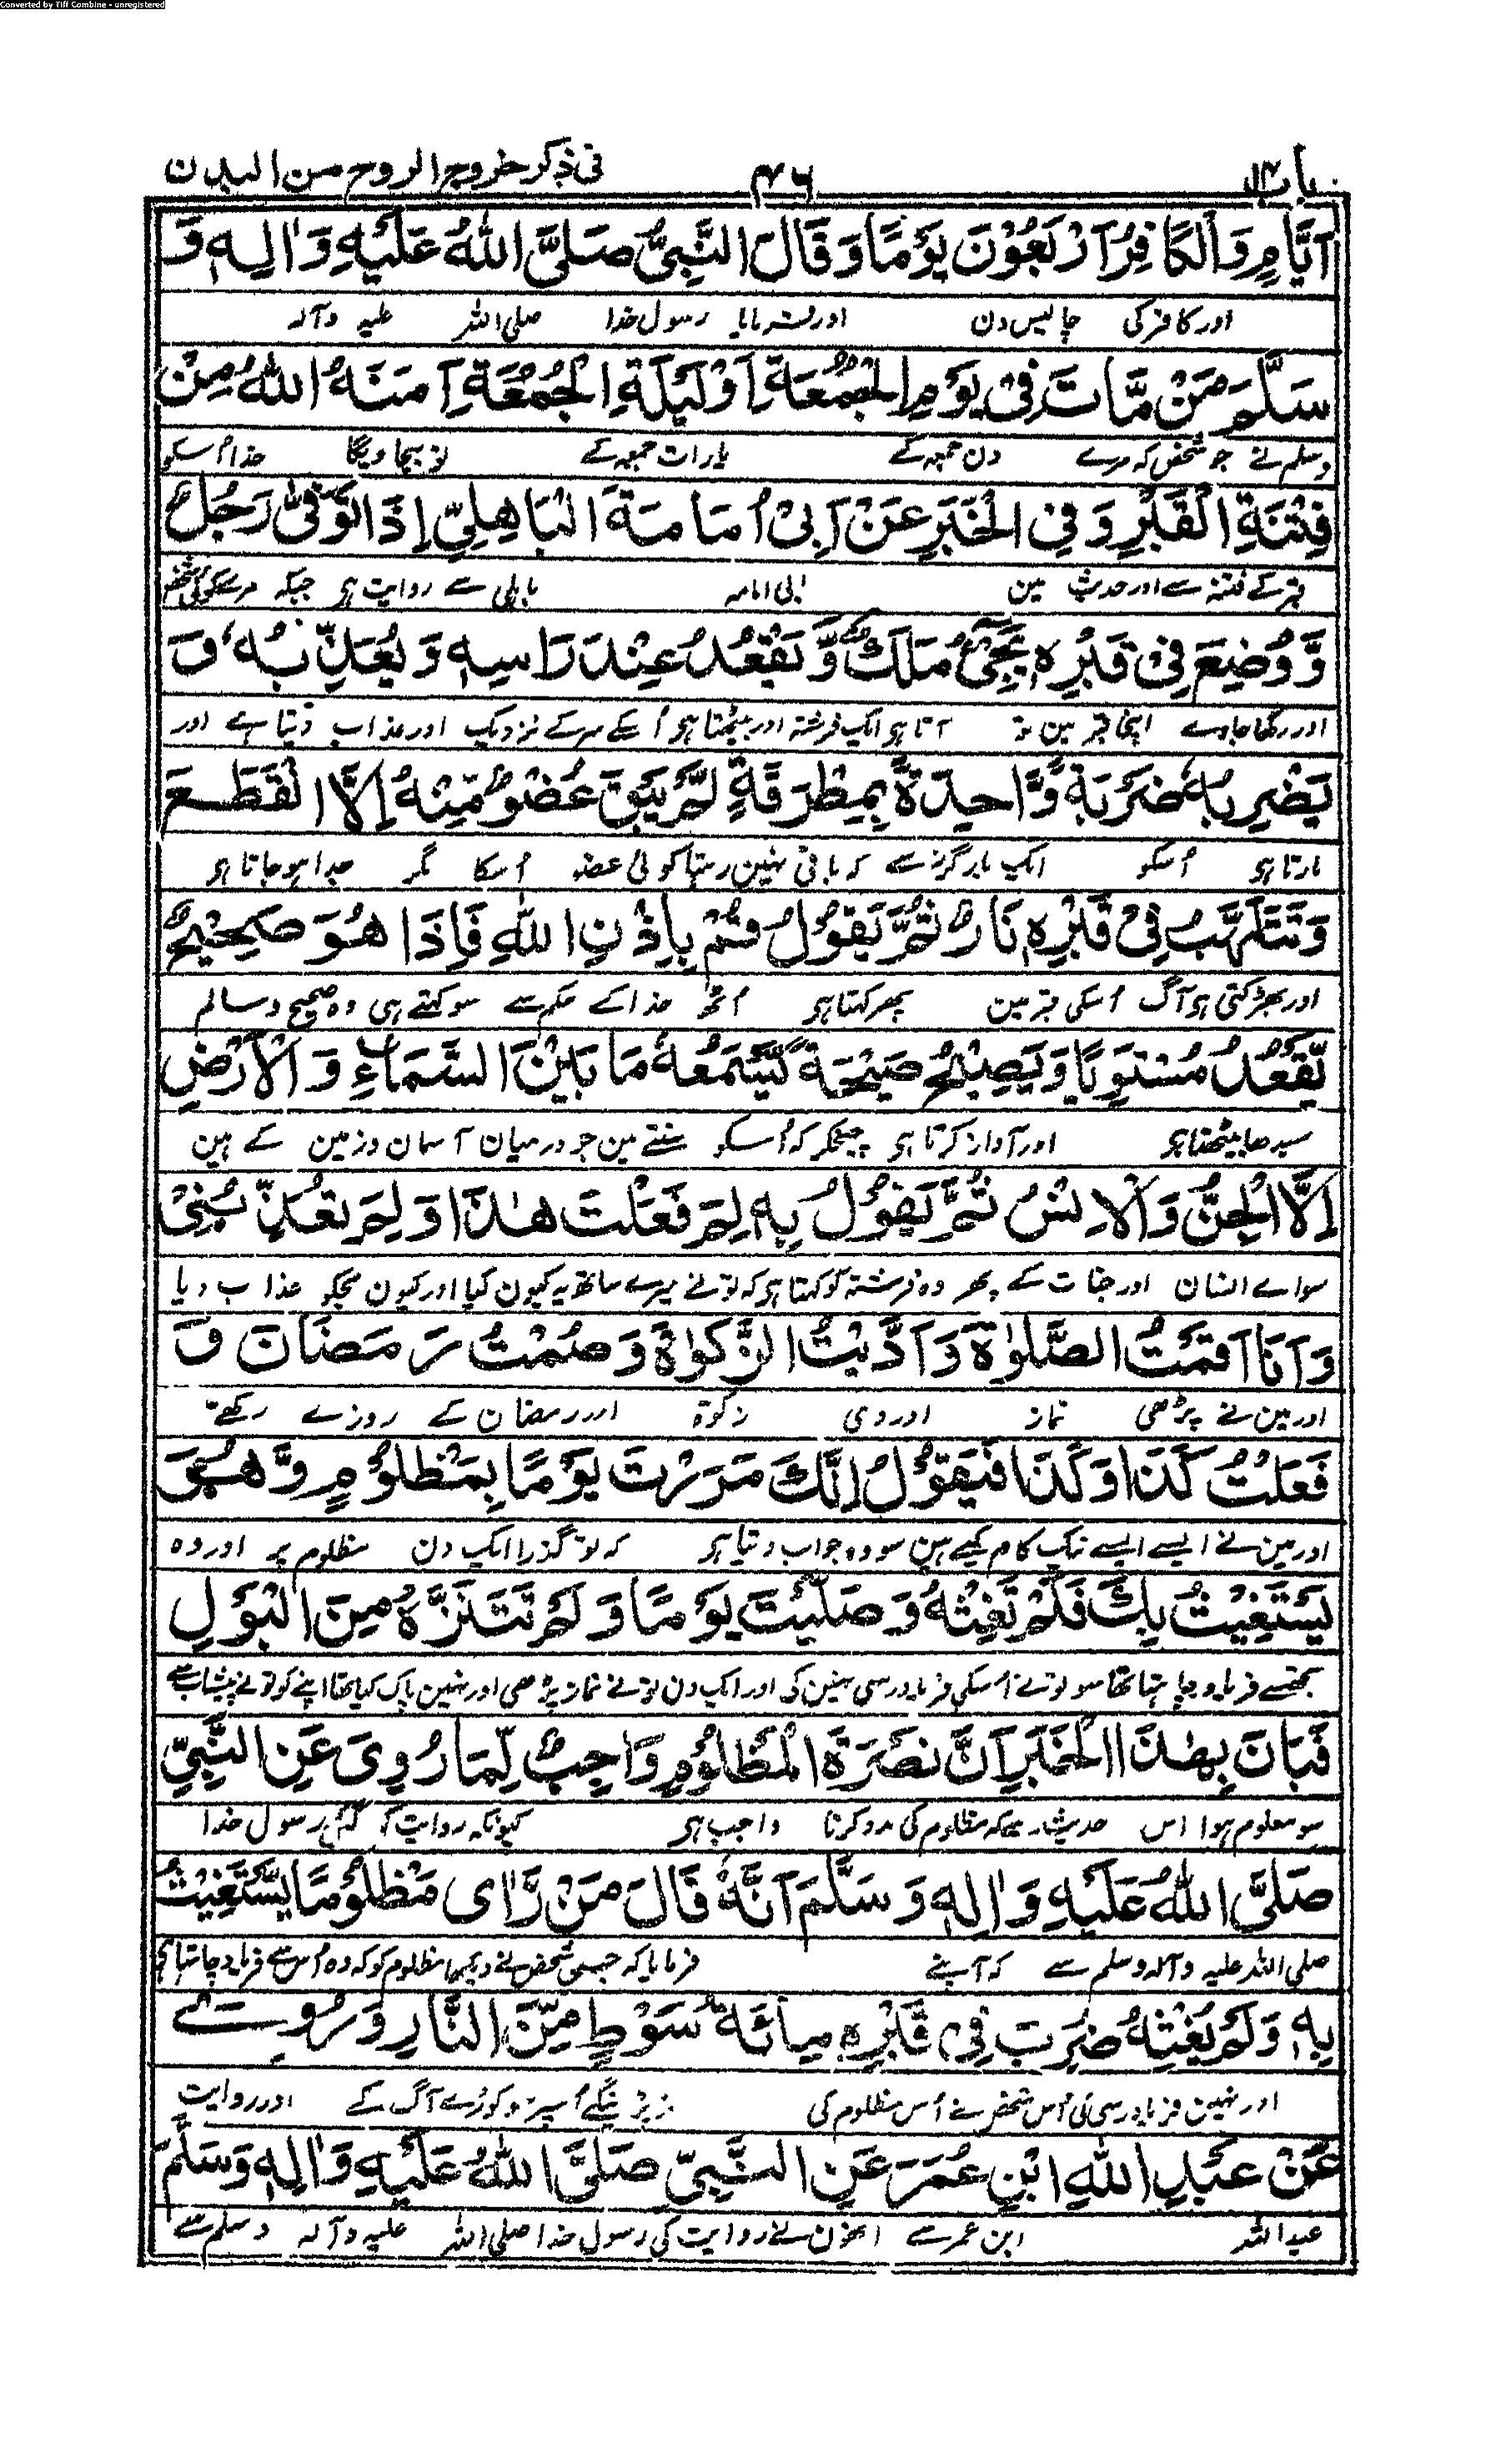 Converted by Tiff Combine - unregistered
باب۱۳ ۴۶ فی ذکر خروج الروح من البدن
اَيَّامٍ وَالْكَافِرُ اَرْبَعُوْنَ يَوْمًا وَقَالَ النَّبِىُّ صَلَّى اللهُ عَلَيْهِ وَاٰلِهٖ وَ
اور کافر کی چالیس دن اور فرمایا رسول خدا صلی اللہ علیہ وآلہ
سَلَّمَ مَنْ مَّاتَ فِىْ يَوْمِ الْجُمُعَةِ اَوْ لَيْلَةِ الْجُمُعَةِ اٰمَنَهُ اللهُ مِنْ
وسلم نے جو شخص کہ مرے دن جمعہ کے یا رات جمعہ کے تو بچاویگا خدا اُسکو
فِتْنَةِ الْقَبْرِ وَفِى الْخَبَرِ عَنْ اَبِىْ اُمَامَةَ الْبَاهِلِىِّ اِذَا تُوَفّٰى رَجُلٌ
قبر کے فتنہ سے اور حدیث مین ابی امامہ باہلی سے روایت ہی جبکہ مرے کوئی شخص
وَّوُضِعَ فِىْ قَبْرِهٖ يَجِىْٓءُ مَلَكٌ وَّيَقْعُدُ عِنْدَ رَاسِهٖ وَيُعَذِّبُهٗ وَ
اور رکھا جاوے اپنی قبر مین تو آتا ہی ایک فرشتہ اور بیٹھتا ہی اُسکے سر کے نزدیک اور عذاب دیتا ہے اور
يَضْرِبُهٗ ضَرْبَةً وَّاحِدَةً بِمِطْرَقَةٍ لَّمْ يَبْقَ عُضْوٌ مِّنْهُ اِلَّا انْقَطَعَ
مارتا ہی اُسکو ایک بار گرز سے کہ باقی نہین رہتا کوئی عضو اُسکا مگر جدا ہو جاتا ہی
وَتَتَلَهَّبُ فِىْ قَبْرِهٖ نَارٌ ثُمَّ يَقُوْلُ قُمْ بِاِذْنِ اللهِ فَاِذَا هُوَ صَحِيْحٌ
اور بھڑکتی ہی آگ اُسکی قبر مین پھر کہتا ہی اُٹھ خدا کے حکم سے سو کہتے ہی وہ صحیح وسالم
يَّقْعُدُ مُسْتَوِيًا وَيَصِيْحُ صَيْحَةً يَّسْمَعُهٗ مَا بَيْنَ السَّمَاءِ وَالْاَرْضِ
سیدھا بیٹھتا ہی اور آواز کرتا ہی چیخکر کہ اُسکو سنتے ہین جو درمیان آسمان وزمین کے ہین
اِلَّا الْجِنَّ وَالْاِنْسَ ثُمَّ يَقُوْلُ بِهٖ لِمَ فَعَلْتَ هٰذَا وَلِمَ تُعَذِّبُنِىْ
سواے انسان اور جنات کے پھر وہ فرشتہ کو کہتا ہی کہ تو نے میرے ساتھ یہ کیون کیا اور کیون مجکو عذاب دیا
وَاَنَا اَقَمْتُ الصَّلٰوةَ وَاَدَّيْتُ الزَّكٰوةَ وَصُمْتُ رَمَضَانَ وَ
اور مین نے پڑھی نماز اور دی زکوٰۃ اور رمضان کے روزے رکھے
فَعَلْتُ كَذَا وَكَذَا فَيَقُوْلُ اِنَّكَ مَرَرْتَ يَوْمًا بِمَظْلُوْمٍ وَّهُوَ
اور مین نے ایسے ایسے نیک کام کیے ہین سو وہ جواب دیتا ہی کہ تو گذرا ایک دن مظلوم پر اور وہ
يَسْتَغِيْثُ بِكَ فَلَمْ تُغِثْهُ وَصَلَّيْتَ يَوْمًا وَلَمْ تَتَنَزَّهْ مِنَ الْبَوْلِ
تجھسے فریاد چاہتا تھا سو تو نے اُسکی فریادرسی نہین کی اور ایک دن تو نے نماز پڑھی اور نہین پاک کیا تھا اپنے کو تو نے پیشاب سے
فَبَانَ بِهٰذَا الْخَبَرِ اَنَّ نُصْرَةَ الْمَظْلُوْمِ وَاجِبٌ لِّمَا رُوِىَ عَنِ النَّبِىِّ
سو معلوم ہوا اس حدیث سے کہ مظلوم کی مدد کرنا واجب ہی کیونکہ روایت کی گئی ہی رسول خدا
صَلَّى اللهُ عَلَيْهِ وَاٰلِهٖ وَسَلَّمَ اَنَّهٗ قَالَ مَنْ رَّاٰى مَظْلُوْمًا يَّسْتَغِيْثُ
صلی اللہ علیہ وآلہ وسلم سے کہ آپنے فرمایا کہ جس شخص نے دیکھا مظلوم کو کہ وہ اُس سے فریاد چاہتا ہی
بِهٖ وَلَمْ يُغِثْهُ ضُرِبَ فِىْ قَبْرِهٖ مِائَةَ سَوْطٍ مِّنَ النَّارِ وَرُوِىَ
اور نہین فریادرسی کی اُس شخص نے اُس مظلوم کی پڑینگے اُسپر سو کوڑے آگ کے اور روایت
عَنْ عَبْدِ اللهِ ابْنِ عُمَرَ عَنِ النَّبِىِّ صَلَّى اللهُ عَلَيْهِ وَاٰلِهٖ وَسَلَّمَ
عبداللہ ابن عمر سے اُنھون نے روایت کی رسول خدا صلی اللہ علیہ وآلہ وسلم سے